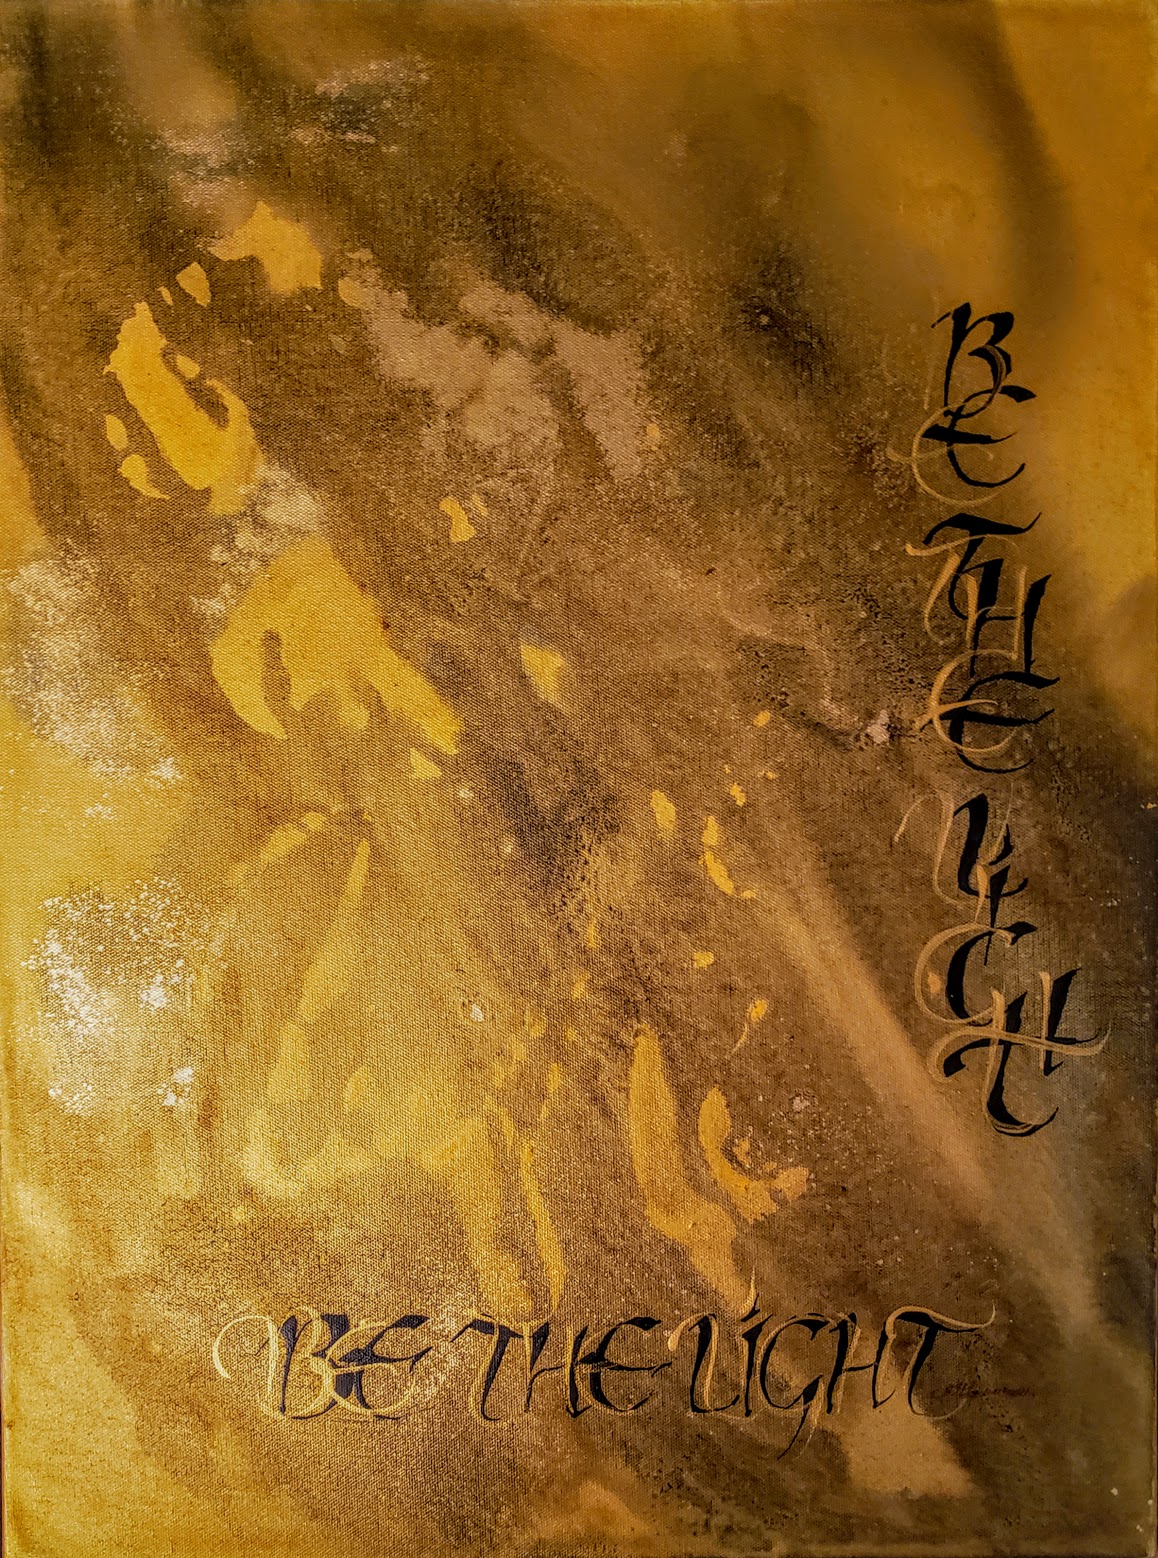 BE THE LIGHT
BE THE LIGHT